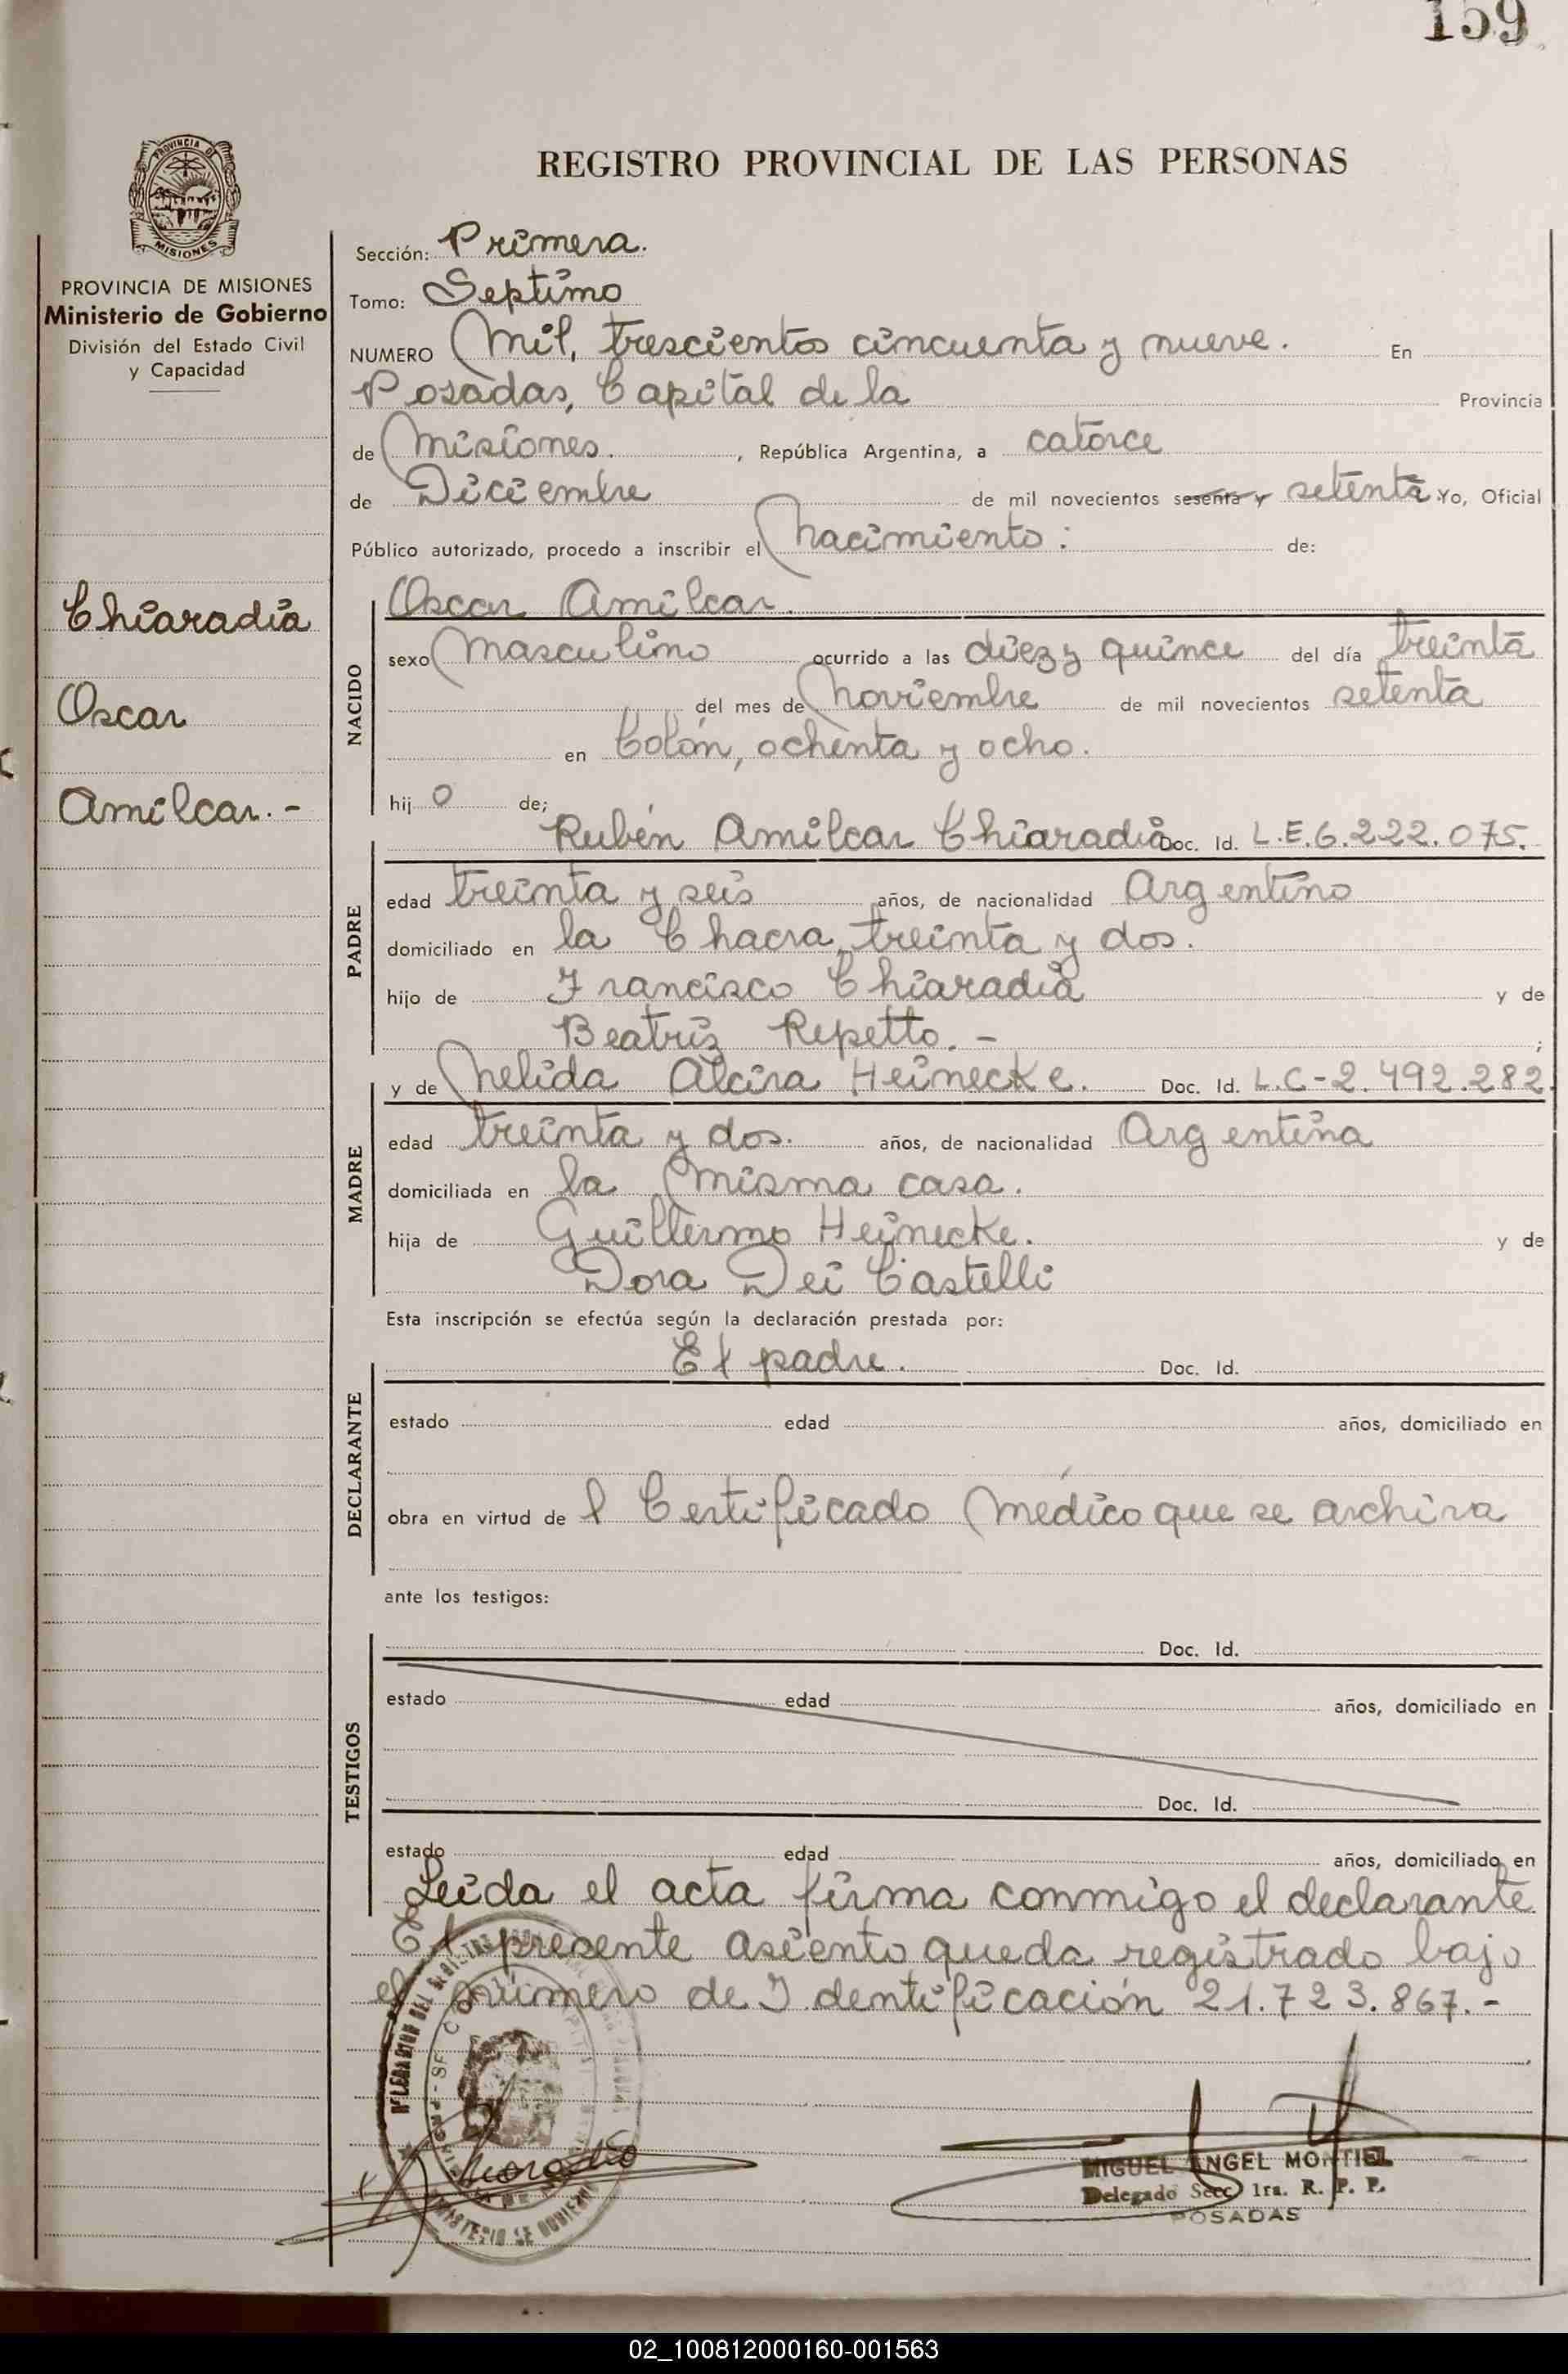 159
PROVINCIA DE
MISIONES
PROVINCIA DE MISIONES
Ministerio de Gobierno
División del Estado Civil
y Capacidad
Chiaradia
Oscar
Amilcar.-
REGISTRO PROVINCIAL DE LAS PERSONAS
Sección: Primera.
Tomo: Septimo
NUMERO Mil, trescientos cincuenta y nueve. En
Posadas, Capital de la Provincia
de Misiones. , República Argentina, a catorce
de Diciembre de mil novecientos sesenta y setenta Yo, Oficial
Público autorizado, procedo a inscribir el Nacimiento: de:
Oscar Amilcar.
NACIDO
sexo Masculino ocurrido a las diez y quince del día treinta
del mes de Noviembre de mil novecientos setenta
en Colón, ochenta y ocho.
hij o de;
Rubén Amilcar Chiaradia Doc. Id. L.E.6.222.075.
PADRE
edad treinta y seis años, de nacionalidad Argentino
domiciliado en la Chacra, treinta y dos.
hijo de Francisco Chiaradia y de
Beatriz Repetto. - ;
y de Nelida Alcira Heinecke. Doc. Id. L.C-2.492.282.
MADRE
edad treinta y dos. años, de nacionalidad Argentina
domiciliada en la misma casa.
hija de Guillermo Heinecke. y de
Dora Dei Castelli
Esta inscripción se efectúa según la declaración prestada por:
El padre. Doc. Id.
DECLARANTE
estado edad años, domiciliado en
obra en virtud de l Certificado Médico que se archiva
ante los testigos:
Doc. Id.
TESTIGOS
estado edad años, domiciliado en
Doc. Id.
estado edad años, domiciliado en
Leida el acta firma conmigo el declarante
El presente asiento queda registrado bajo
el número de Identificación 21.723.867.-
MIGUEL ANGEL MONTIEL
Delegado Secc. 1ra. R. P. P.
POSADAS
02_100812000160-001563